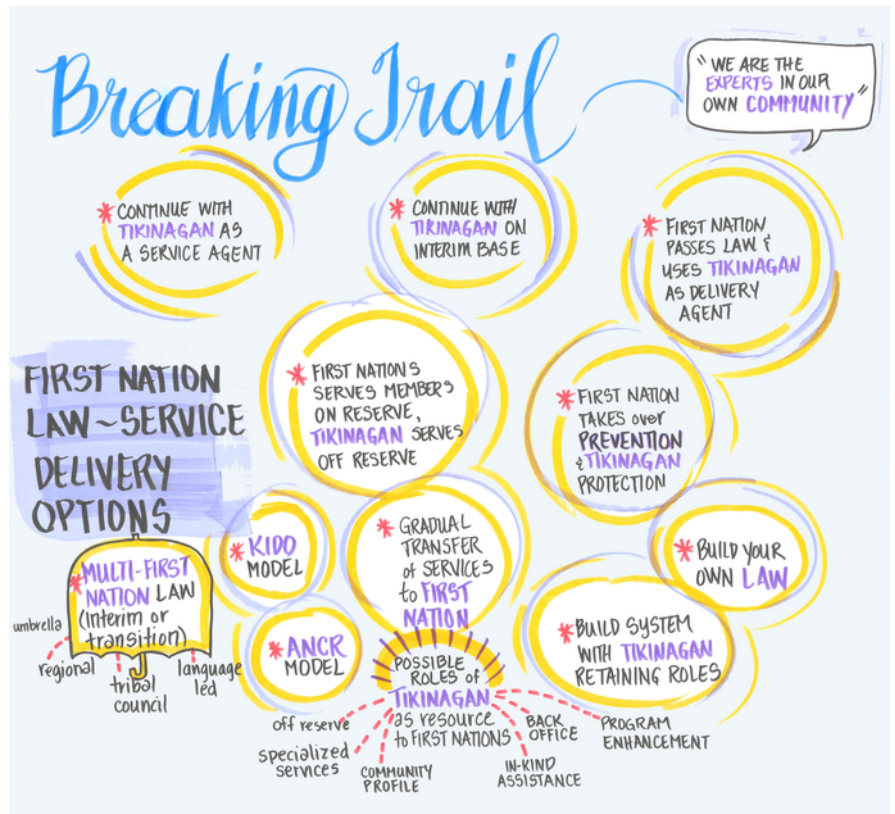 Breaking Trail
"WE ARE THE
EXPERTS IN OUR
OWN COMMUNITY"
* CONTINUE WITH
TIKINAGAN AS
A SERVICE AGENT
* CONTINUE WITH
TIKINAGAN ON
INTERIM BASE
* FIRST NATION
PASSES LAW &
USES TIKINAGAN
AS DELIVERY
AGENT
FIRST NATION
LAW ~ SERVICE
DELIVERY
OPTIONS
* FIRST NATIONS
SERVES MEMBERS
ON RESERVE,
TIKINAGAN SERVES
OFF RESERVE
* FIRST NATION
TAKES over
PREVENTION
& TIKINAGAN
PROTECTION
* MULTI-FIRST
NATION LAW
(interim or
transition)
umbrella
regional
tribal
council
language
led
* KIDO
MODEL
* GRADUAL
TRANSFER
of SERVICES
to FIRST
NATION
* BUILD YOUR
OWN LAW
* ANCR
MODEL
* BUILD SYSTEM
WITH TIKINAGAN
RETAINING ROLES
POSSIBLE
ROLES of
TIKINAGAN
as resource
to FIRST NATIONS
off reserve
specialized
services
COMMUNITY
PROFILE
IN-KIND
ASSISTANCE
BACK
OFFICE
PROGRAM
ENHANCEMENT